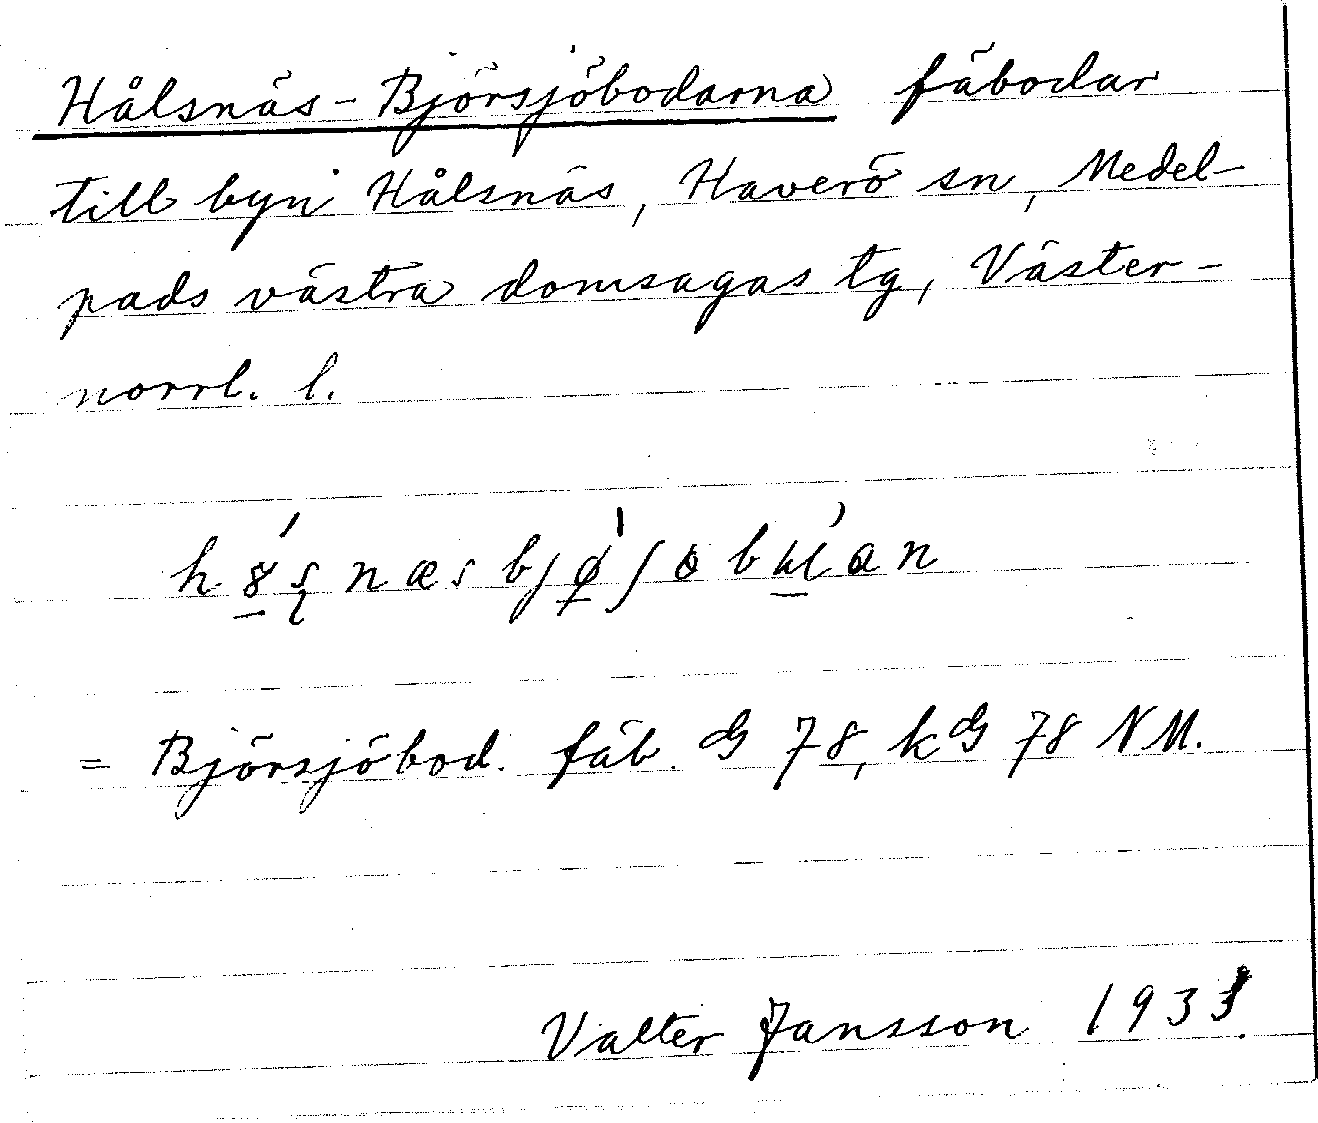 Hålsnäs-Björsjöbodarna fäbodar
till byn Hålsnäs, Haverö sn, Medel-
pads västra domsagas tg, Väster-
norrl. l.
= Björsjöbod. fäb. G 78, kG 78 NM.
Valter Jansson